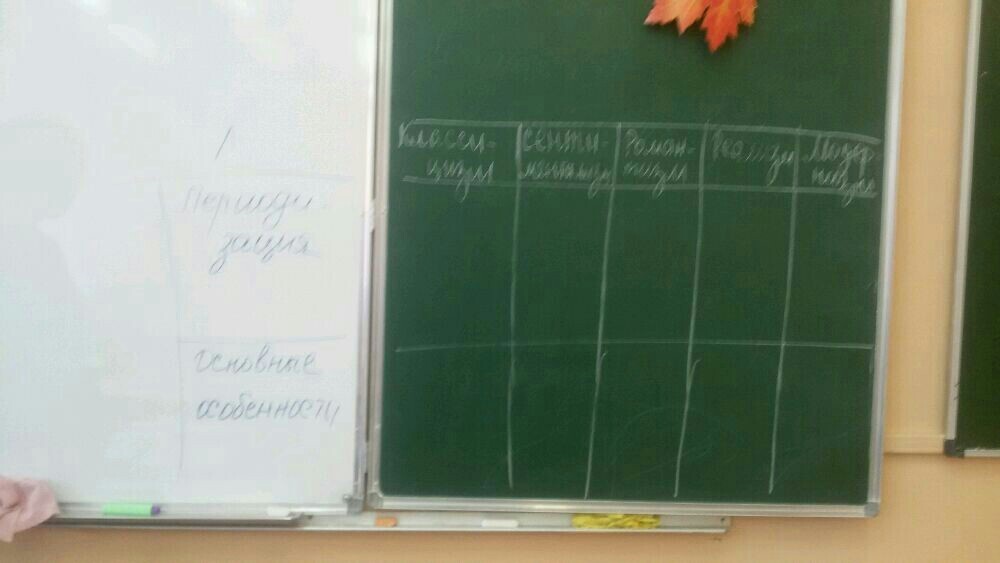 Периоди-
зация
Основные
особенности
Класси-
цизм
Сенти-
ментализм
Роман-
тизм
Реализм
Модер
низм